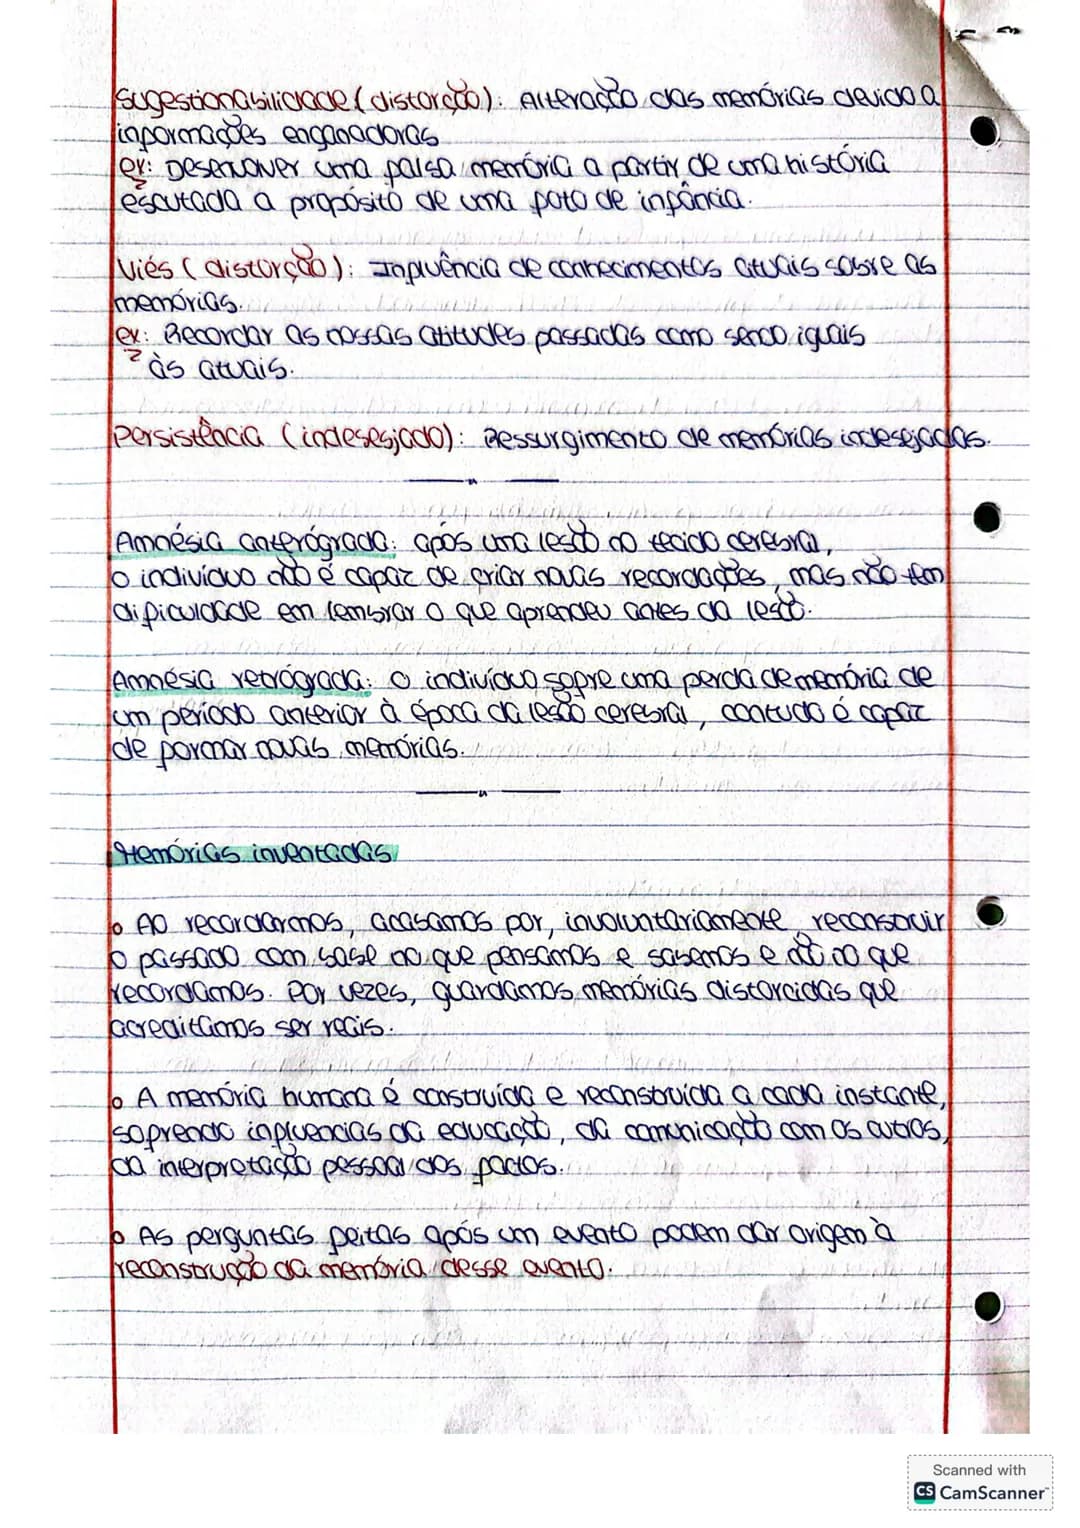 Sugestionabilidade (distorção): Alteração das memórias devido a
informações enganadoras
ex: Desenvolver uma falsa memória a partir de uma história
escutada a propósito de uma foto de infância.
Viés (distorção): Influência de conhecimentos atuais sobre as
memórias.
ex: Recordar as nossas atitudes passadas como sendo iguais
às atuais.
Persistência (indesesjado): Ressurgimento de memórias indesejadas.
Amnésia anterógrada: após uma lesão no tecido cerebral,
o indivíduo não é capaz de criar novas recordações, mas não tem
dificuldade em lembrar o que aprendeu antes da lesão.
Amnésia retrógrada: o indivíduo sofre uma perda de memória de
um período anterior à época da lesão cerebral, contudo é capaz
de formar novas memórias.
Memórias inventadas
o Ao recordarmos, acabamos por, involuntariamente, reconstruir
o passado com base no que pensamos e sabemos e não no que
recordamos. Por vezes, guardamos memórias distorcidas que
acreditamos ser reais.
o A memória humana é construída e reconstruida a cada instante,
sofrendo influencias da educação, da comunicação com os outros,
da interpretação pessoal dos factos.
o As perguntas feitas após um evento podem dar origem à
reconstrução da memória desse evento.
Scanned with
CS CamScanner